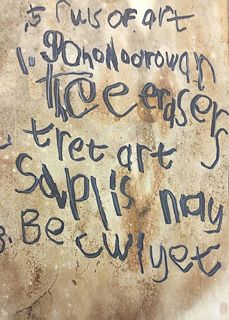 5 ruls of art
1. go no
The erasers
tret art
Saplis nay
3. Be cwiyet